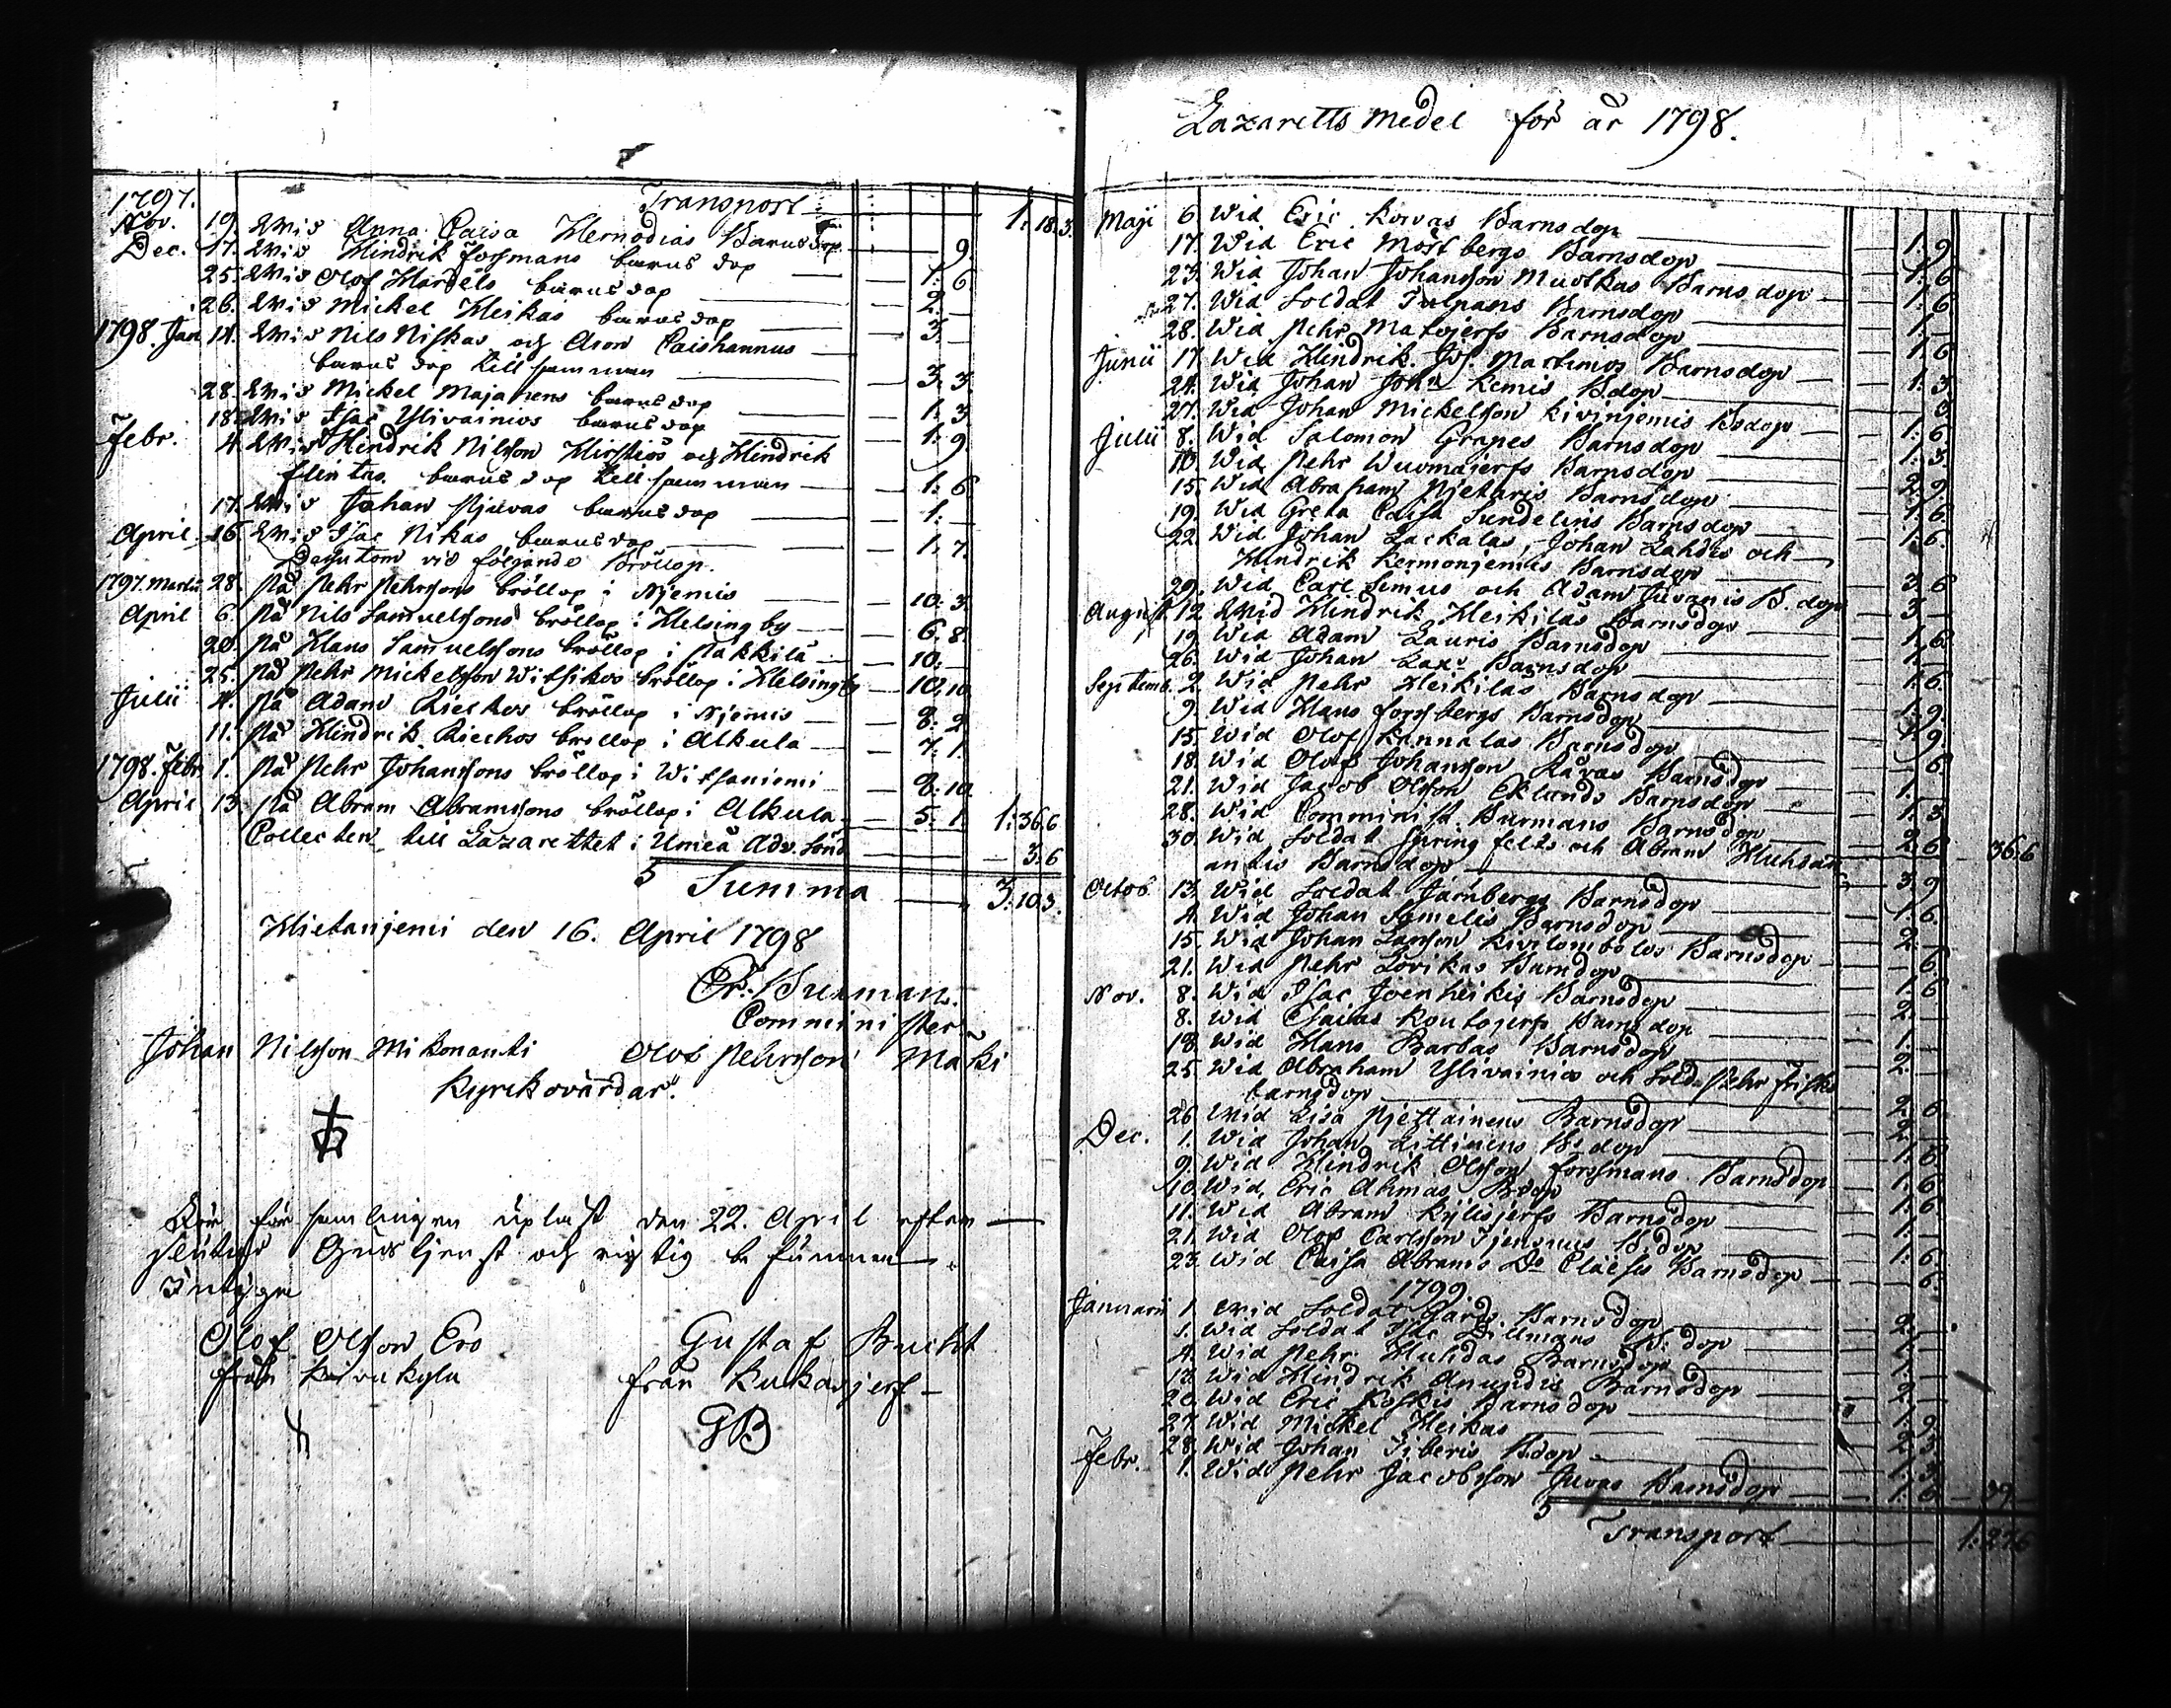 1797. Transport 1: 18. 3.
Nov. 19. Wid Anna Caisa Hermodias Barnsdop 9.
Dec. 17. Wid Hindrik Forssmans barnsdop 1: 6
25. Wid Olof Mardels barnsdop 2. –
26. Wid Mickel Heikas barnsdop 3. –
1798. Jan 14. Wid Nils Niskas och Aron Caishannus
barnsdop tillsamman 3. 3.
28. Wid Mickel Majanens barnsdop 1. 3
18. Wid Isac Ylivainios barnsdop 1. 9.
Febr. 4. Wid Hindrik Nilsson Hirstiös och Hindrik
Flintas barnsdop tillsamman 1. 6.
17. Wid Johan Njuvas barnsdop 1. –
April 16. Wid Isac Nikas barnsdop 1. 7.
Dessutom vid följande Bröllop.
1797. Martii 28. på Pehr Pehrssons bröllop i Njemis 10. 3.
April 6. på Nils Samuelssons bröllop i Helsingby 6. 8.
20. på Hans Samuelssons bröllop i Päkkilä 10. –
25. på Pehr Mickelsson Witsikos bröllop i Helsingby 10. 10
Julii 4. på Adam Riechos bröllop i Njemis 8. 2
11. på Hindrik Riechos bröllop i Alkula 7. 1.
1798. Febr 1. på Pehr Johanssons bröllop i Witsaniemi 8. 10
April 13. på Abram Abramssons bröllop i Alkula 5. 1. 1: 36. 6
Collecten till Lazarettet i Umeå Adv. Sönd 3. 6
Summa 3. 10 3.
Hietanjemi den 16. April 1798
Er. Burman.
Comminister
Johan Nilsson Mikonantti Olof Pehrsson Mäki
Kyrkovärdar.
För församlingen uplast den 22. April efter
slutad Gudstjenst och rigtig befunnen.
Intyga
Olof Olsson Ero Gustaf Bucht
från Kuivakylä från Kukasjerf
GB
Lazaretts medel för år 1798.
Maji 6. Wid Eric Korvas Barnsdop 1. 9
17. Wid Eric Mörtbergs Barnsdop 1. 6
23. Wid Johan Johansson Muotkas Barnsdop 1. 6
27. Wid Soldat Tulpans Barnsdop 1. –
28. Wid Pehr Matojerfs Barnsdop 1. 6
Junii 17. Wid Hindrik Jos. Martimos Barnsdop 1. 3
24. Wid Johan Joh:n Kemis Bdop
27. Wid Johan Mickelsson Kivinjemis Bsdop 1. 6
Julii 8. Wid Salomon Grapes Barnsdop 1. 3.
10. Wid Pehr Wuomajerfs Barnsdop 2. 9
15. Wid Abraham Pjetaris Barnsdop 1. 6
19. Wid Greta Caisa Sundelins Barnsdop 1. 6.
22. Wid Johan Lackalas, Johan Lahdis och
Hindrik Kermonjemis Barnsdop 3. 6
29. Wid Carl Simus och Adam Juvanis B. dop 3. –
August. 12. Wid Hindrik Heikiläs Barnsdop 1. 6
19. Wid Adam Lauris Barnsdop 1. –
26. Wid Johan Barnsdop 1. 6.
Septemb. 2. Wid Pehr Heikiläs Barnsdop 1. 9.
9. Wid Hans Forssbergs Barnsdop 1. 9.
15. Wid Olof Kannalas Barnsdop 6.
18. Wid Olof Johansson Rävas Barnsdop 1. –
21. Wid Jacob Olsson Eklunds Barnsdop 1. 3
28. Wid Comminist. Burmans Barnsdop 2. 6 36. 6
30. Wid Soldat Springfelts och Abram Huhta
anttis Barnsdop 3. 9
Octob. 13. Wid Soldat Jarnbergs Barnsdop 1. 6.
4. Wid Johan Samelis Barnsdop 2. –
15. Wid Johan Larsson Kivilombolos Barnsdop 6.
21. Wid Pehr Lovikas Barnsdop 1. 6
Nov. 8. Wid Isac Joenheikis Barnsdop 2. –
8. Wid Esaias Koutojerfs Barnsdop 1. –
18. Wid Hans Barbas Barnsdop 2. –
25. Wid Abraham Ylivainios och Sold. Pehr Frisks
barnsdop 2. 6
26. Wid Lisa Pjettainens Barnsdop 2. –
Dec. 1. Wid Johan Kittinens Bsdop 1. 6
9. Wid Hindrik Olsson Forssmans Barnsdop 1. 6
10. Wid Eric Ahmas Bdop 1. 6
11. Wid Abram Kylisjerfs Barnsdop 1. –
21. Wid Olof Carlsson B. dop 1. 6
23. Wid Caisa Abrams D:r Barnsdop 6.
1799
Januarii 1. Wid Soldat Gards Barnsdop 2. –
1. Wid Soldat Isac Dillmans B: dop 1. –
4. Wid Pehr Huhdas Barnsdop 1. –
13. Wid Hindrik Anundis Barnsdop 2. –
20. Wid Eric Koskis Barnsdop 1. 9
27. Wid Mickel Heikas 2. 3.
28. Wid Johan Tiberis Bdop 1. 3.
Febr. 1. Wid Pehr Jacobsson Juvas Barnsdop 1. 6. 39
Transport 1. 27. 6